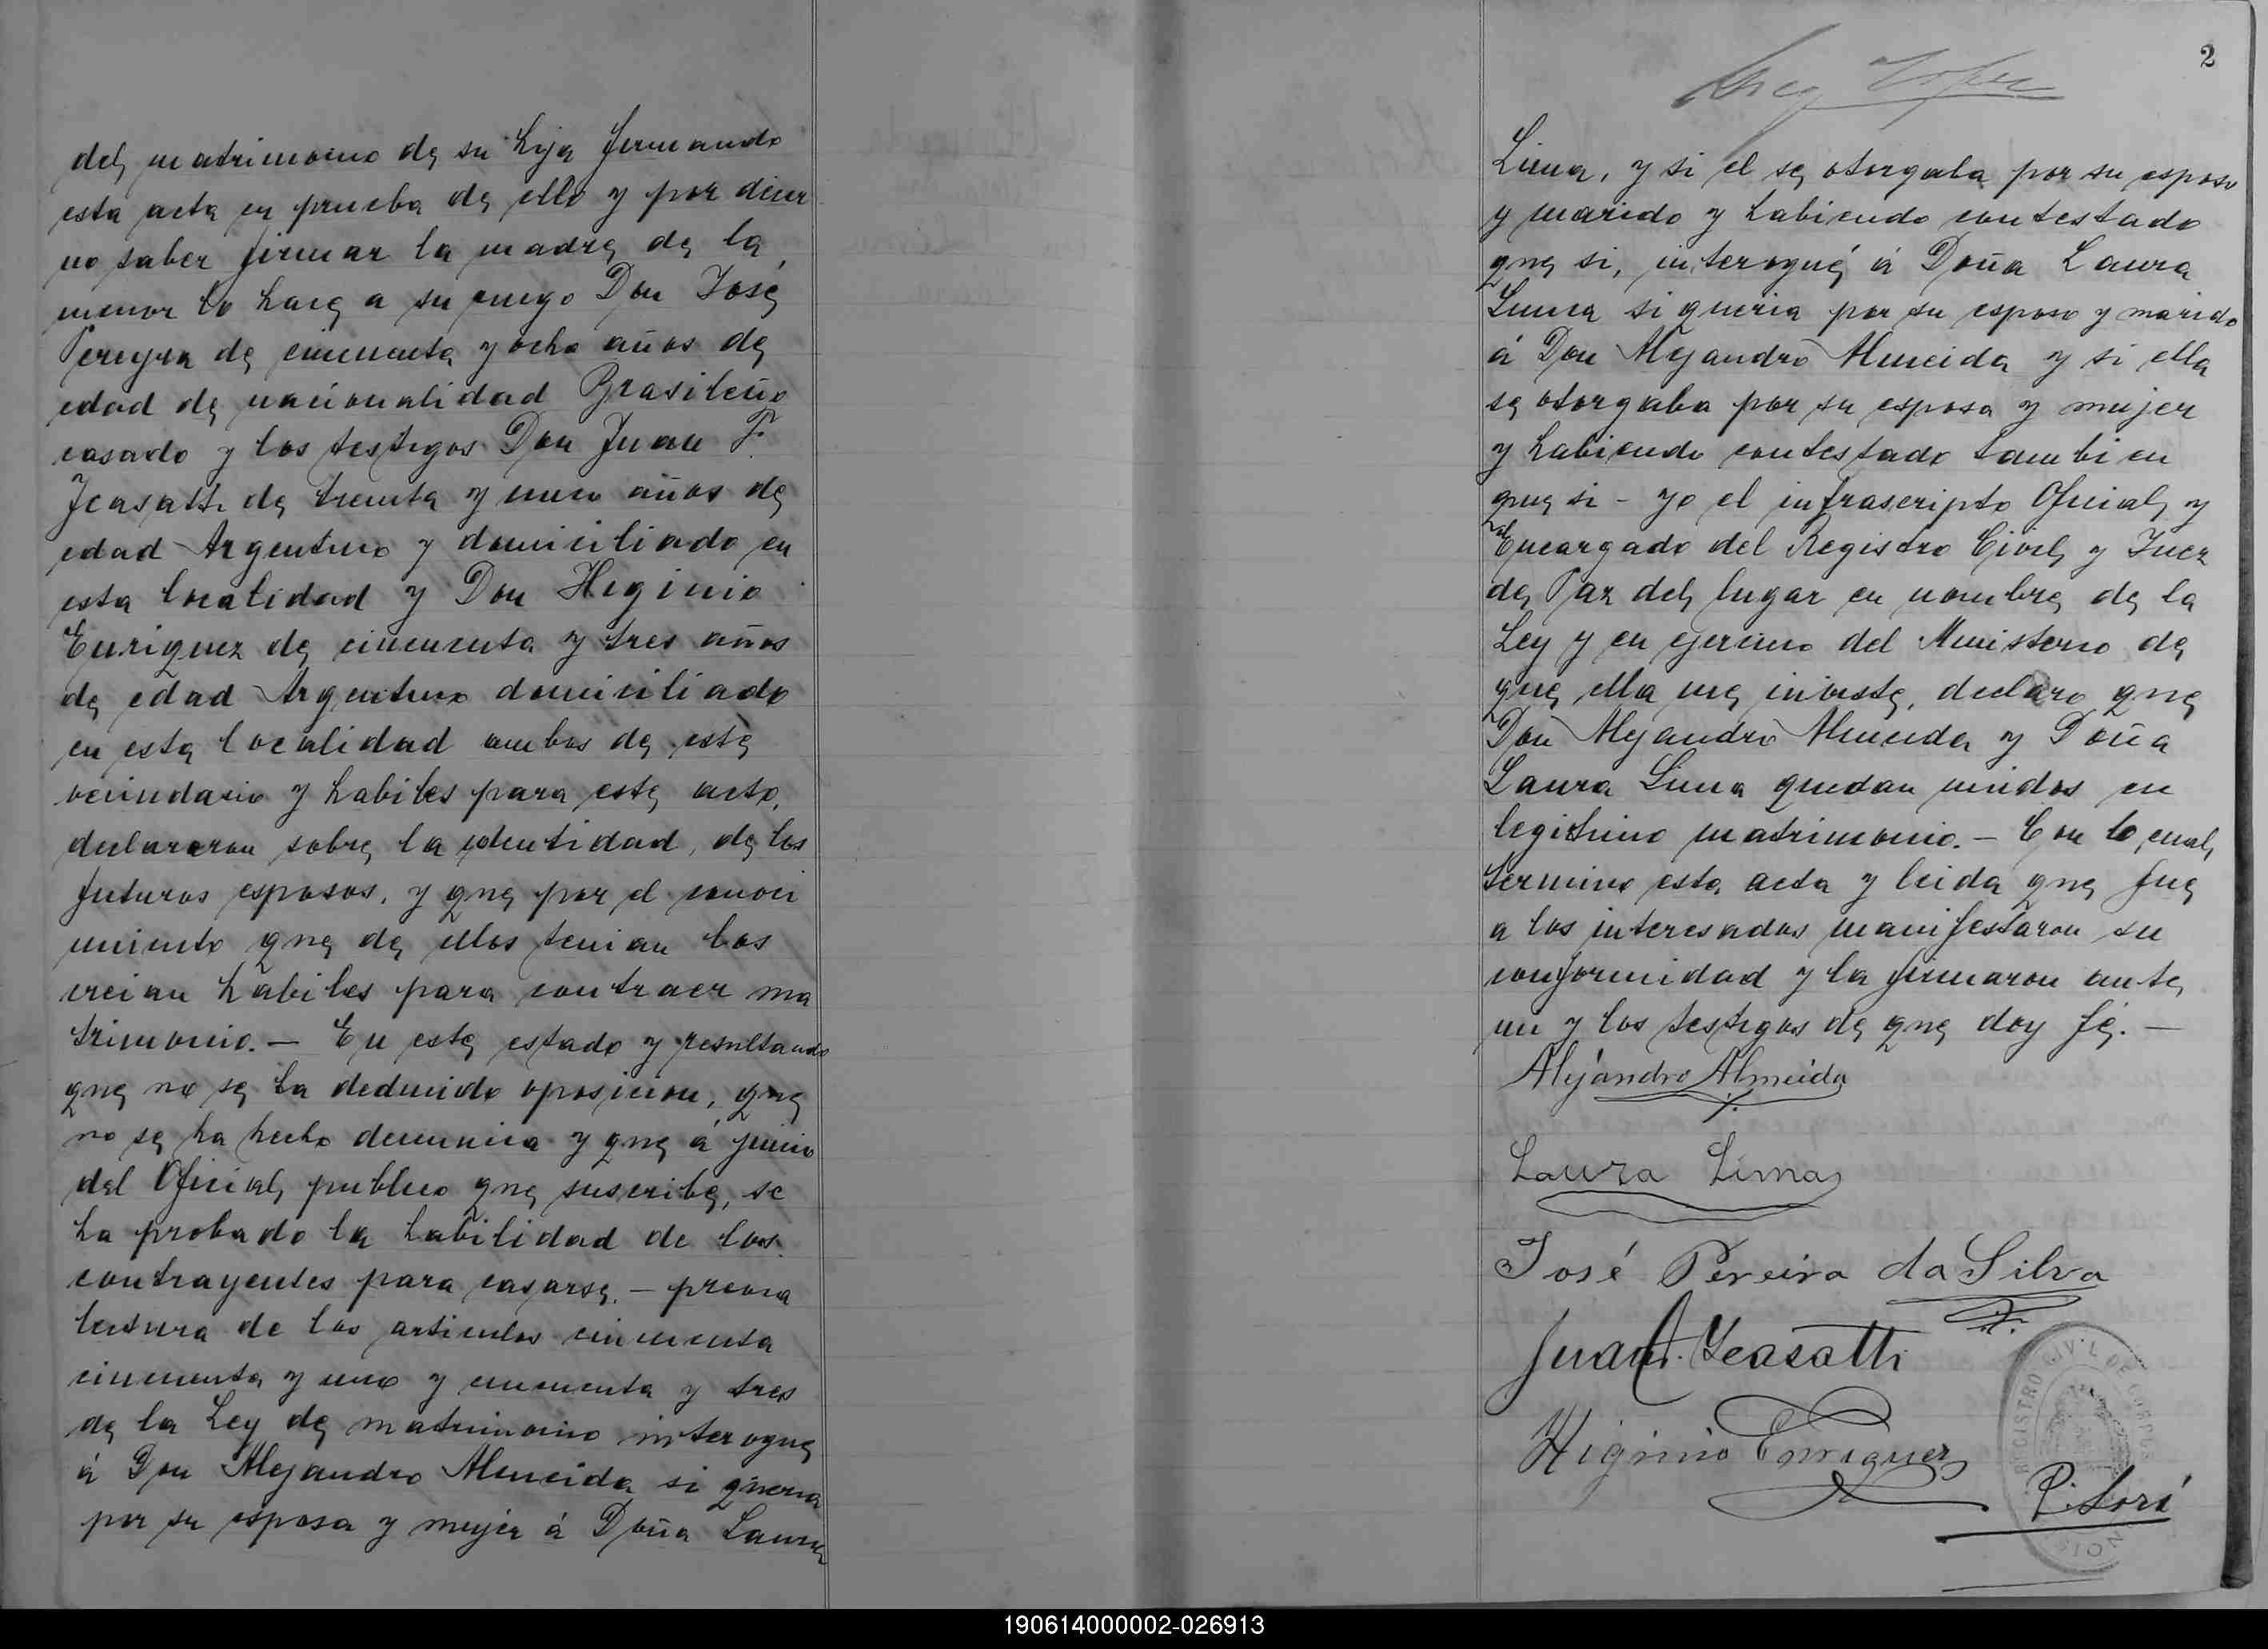 del matrimonio de su hija firmando
esta acta en prueba de ello y por decir
no saber firmar la madre de la
menor lo hace a su ruego Don José
Pereyra de cincuenta y ocho años de
edad de nacionalidad Brasileño
casado y los testigos Don Juan F.
Jcasatti de treinta y uno años de
edad Argentino y domiciliado en
esta localidad y Don Higinio
Enriquez de cincuenta y tres años
de edad Argentino domiciliado
en esta localidad ambos de este
vecindario y habiles para este acto,
declararon sobre la identidad, de los
futuros esposos, y que por el conoci
miento que de ellos tenian los
creian habiles para contraer ma
trimonio. — En este estado y resultando
que no se ha deducido oposicion, que
no se ha hecho denuncia y que á juicio
del Oficial publico que suscribe, se
ha probado la habilidad de los
contrayentes para casarse. — previa
lectura de los articulos cincuenta
cincuenta y uno y cincuenta y tres
de la Ley de matrimonio interogue
á Don Alejandro Almeida si queria
por su esposa y mujer á Doña Laura
2
Lima, y si el se otorgaba por su esposo
y marido y habiendo contestado
que si, interogué á Doña Laura
Lima si queria por su esposo y marido
á Don Alejandro Almeida y si ella
se otorgaba por su esposa y mujer
y habiendo contestado tambien
que si - yo el infrascripto Oficial y
Encargado del Registro Civil y Juez
de Paz del lugar en nombre de la
Ley y en ejercicio del Ministerio de
que ella me inviste, declaro que
Don Alejandro Almeida y Doña
Laura Lima quedan unidos en
legitimo matrimonio. — Con lo cual
termino esta acta y leida que fue
a los interesados manifestaron su
conformidad y la firmaron ante
mi y los testigos de que doy fé. —
Alejandro Almeida
Laura Lima
José Pereira da Silva
Juan F. Jcasatti
Higinio Enriquez
REGISTRO CIVIL DE CORPUS
P. Lorí
190614000002-026913